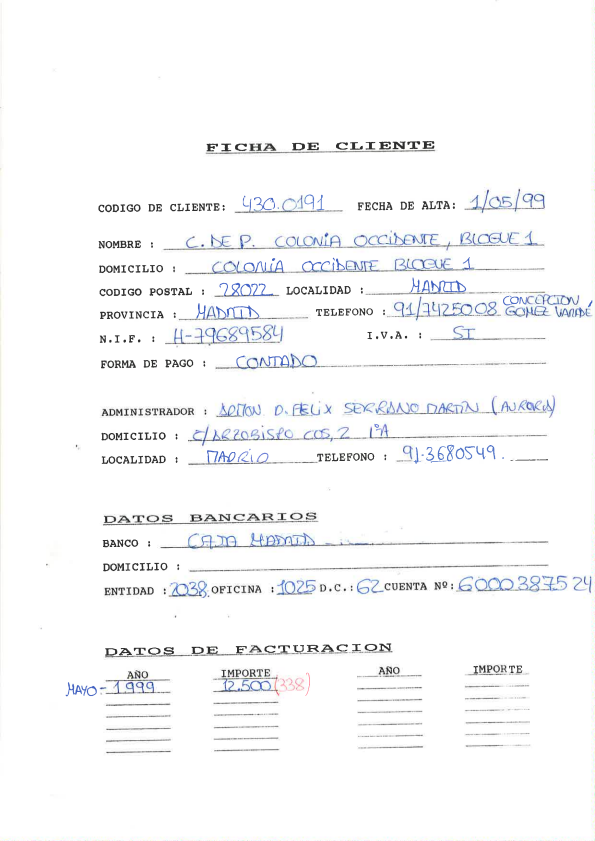 FICHA DE CLIENTE
CODIGO DE CLIENTE: 430.0191 FECHA DE ALTA: 1/05/99
NOMBRE : C. DE P. COLONIA OCCIDENTE, BLOQUE 1
DOMICILIO : COLONIA OCCIDENTE BLOQUE 1
CODIGO POSTAL : 28022 LOCALIDAD : MADRID
PROVINCIA : MADRID TELEFONO : 91/7425008 CONCEPCION GOMEZ
N.I.F. : H-79689584 I.V.A. : SI
FORMA DE PAGO : CONTADO
ADMINISTRADOR : ADMON D. FELIX SERRANO MARTIN (AURORA)
DOMICILIO : C/ ARZOBISPO COS, 2 1ºA
LOCALIDAD : MADRID TELEFONO : 91-3680549.
DATOS BANCARIOS
BANCO : CAJA MADRID
DOMICILIO :
ENTIDAD : 2038 OFICINA : 1025 D.C.: 62 CUENTA Nº: 6000387524
DATOS DE FACTURACION
AÑO IMPORTE AÑO IMPORTE
MAYO - 1999 12.500 (338)